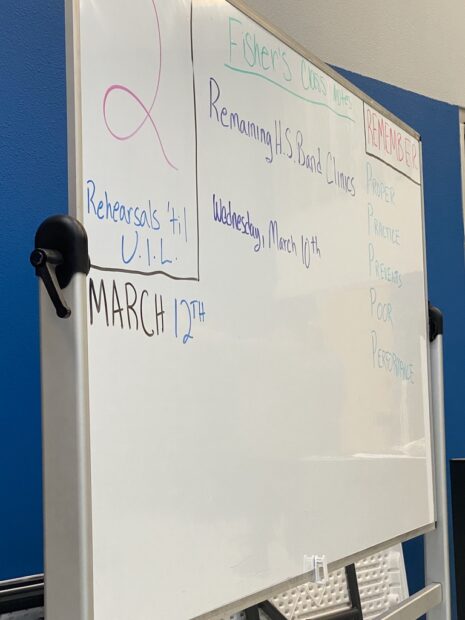 2
Rehearsals 'til
U.I.L.
MARCH 12TH
Fisher's Class Notes
Remaining H.S. Band Clinics
Wednesday, March 10th
REMEMBER
PROPER
PRACTICE
PREVENTS
POOR
PERFORMANCE